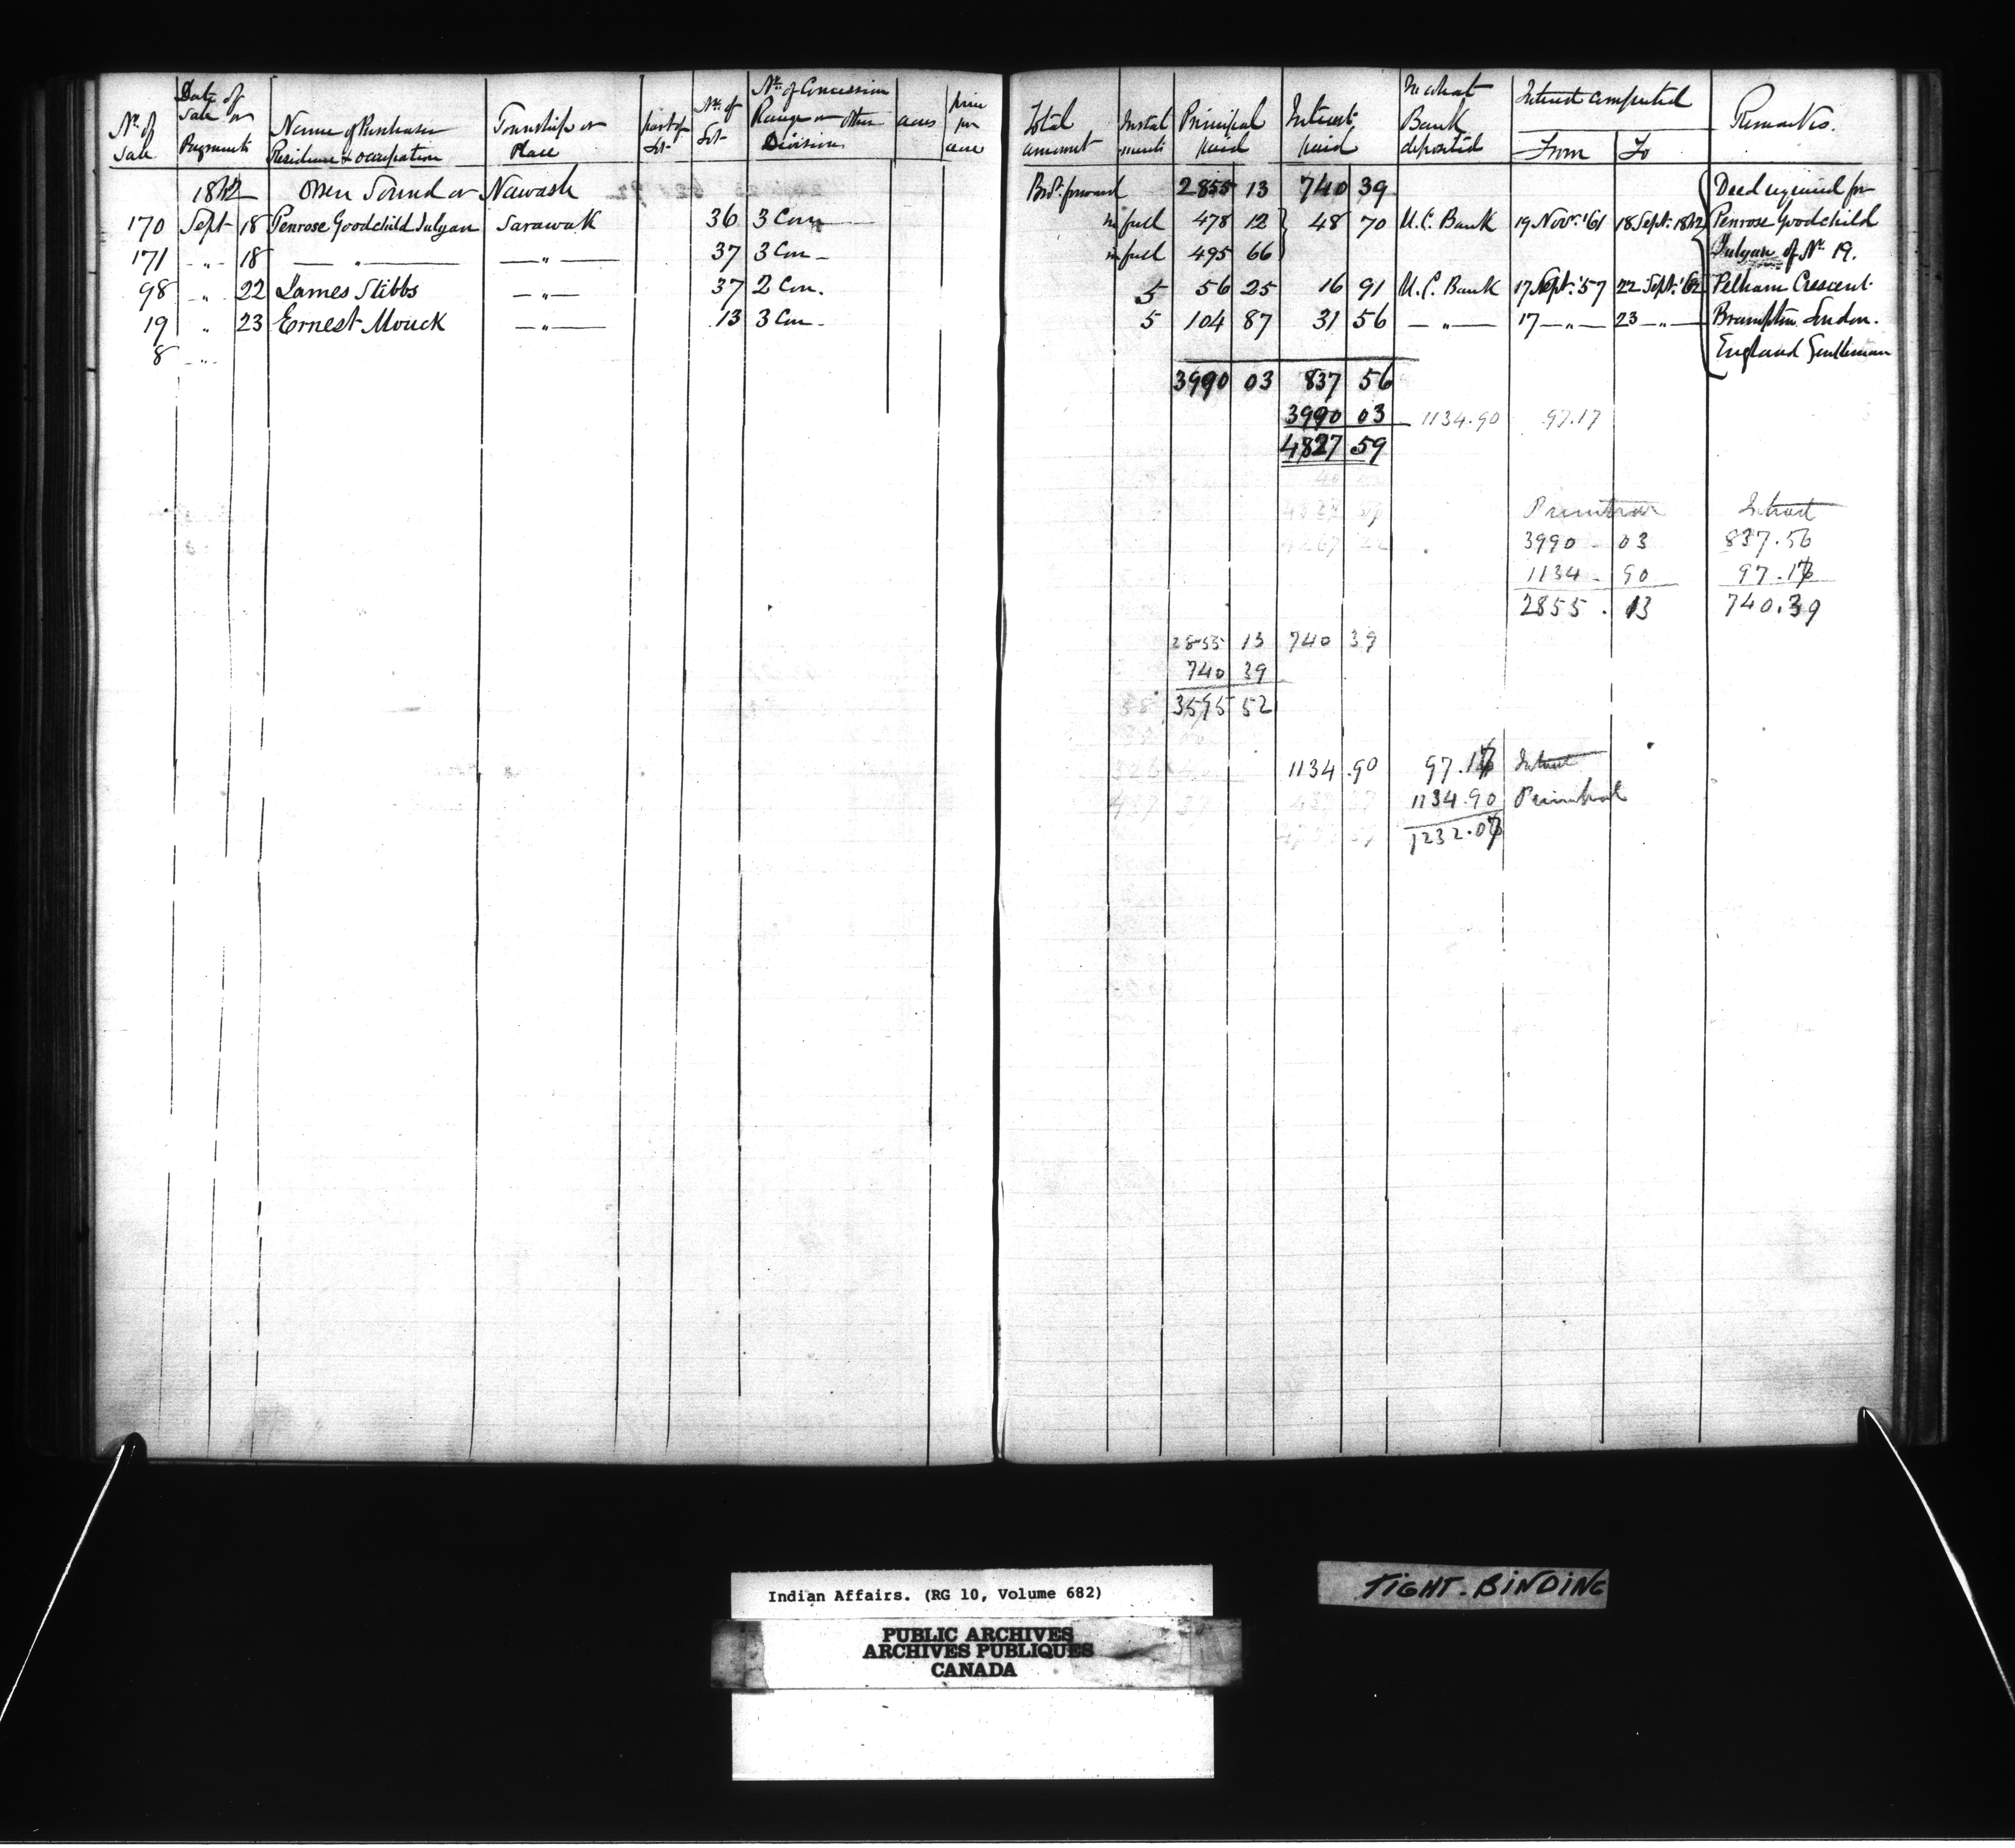 No. of Sale | Date of Sale or Payments | Name of Purchaser Residence & occupation | Township or Place | part of Lot | No. of Lot | No. of Concession Range or other Division | acres | price per acre | Total amount | Instalments | Principal paid | Interest paid | In what Bank deposited | Interest computed From | To | Remarks.
1862 Owen Sound or Nawash Brot. forward 2855 13 740 39 Deed required for
170 Sept 18 Penrose Goodchild Julyan Sarawak 36 3 Con in full 478 12 } 48 70 U.C. Bank 19 Novr. '61 18 Sept. 1862 Penrose Goodchild
171 " 18 — " — — " — 37 3 Con in full 495 66 Julyan of No. 19.
98 " 22 James Stibbs — " — 37 2 Con. 5 56 25 16 91 U.C. Bank 17 Sept. '57 22 Sept. '62 Pelham Crescent
19 " 23 Ernest Mouck — " — 13 3 Con. 5 104 87 31 56 — " — 17 — " — 23 — " — Brompton London.
8 — " — England Gentleman
3990 03 837 56
3990 03 1134.90 97.17
4827 59
Principal Interest
3990 - 03 837.56
1134 - 90 97.17
2855 . 13 740.39
2855 13 740 39
740 39
3595 52
1134.90 97.17 Interest
1134.90 Principal
1232.07
Indian Affairs. (RG 10, Volume 682)
TIGHT-BINDING
PUBLIC ARCHIVES
ARCHIVES PUBLIQUES
CANADA